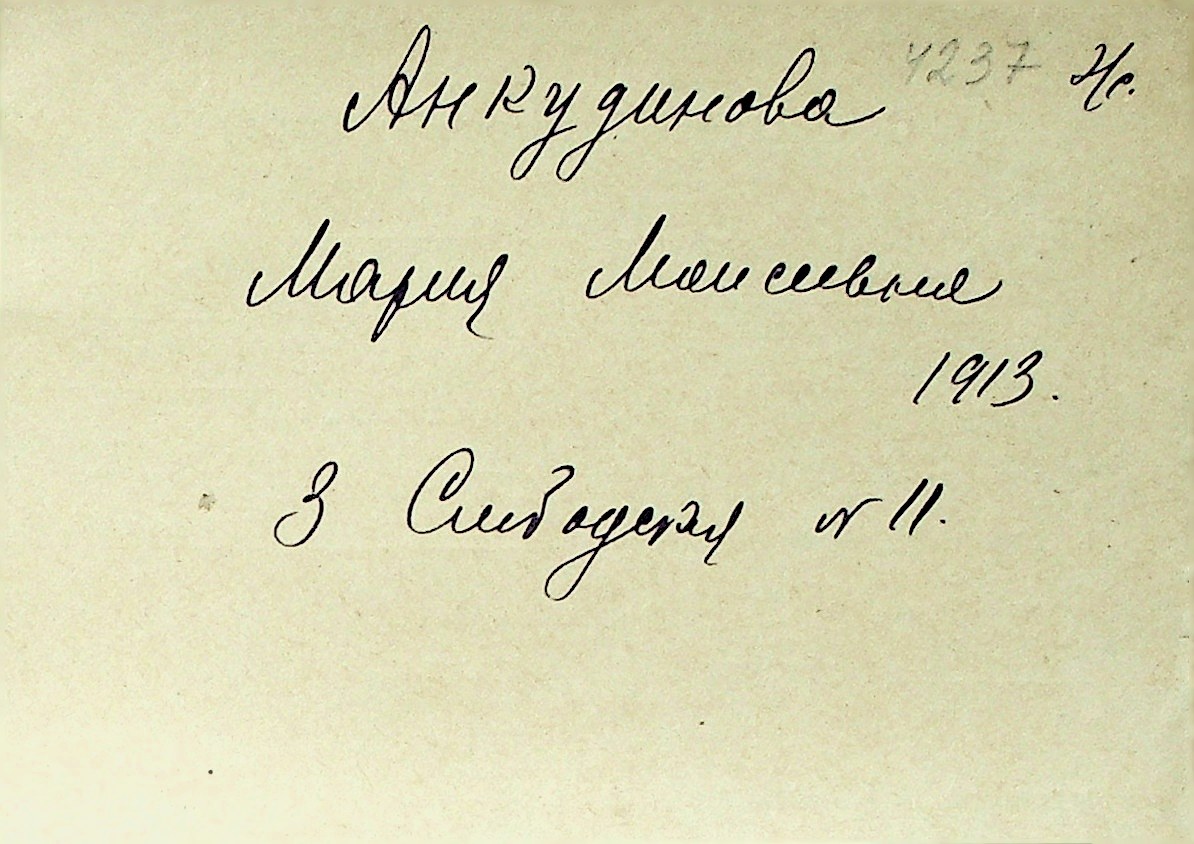 Анкудинова 4237 Н/с.
Мария Моисеевна
1913.
3 Слободская № 11.